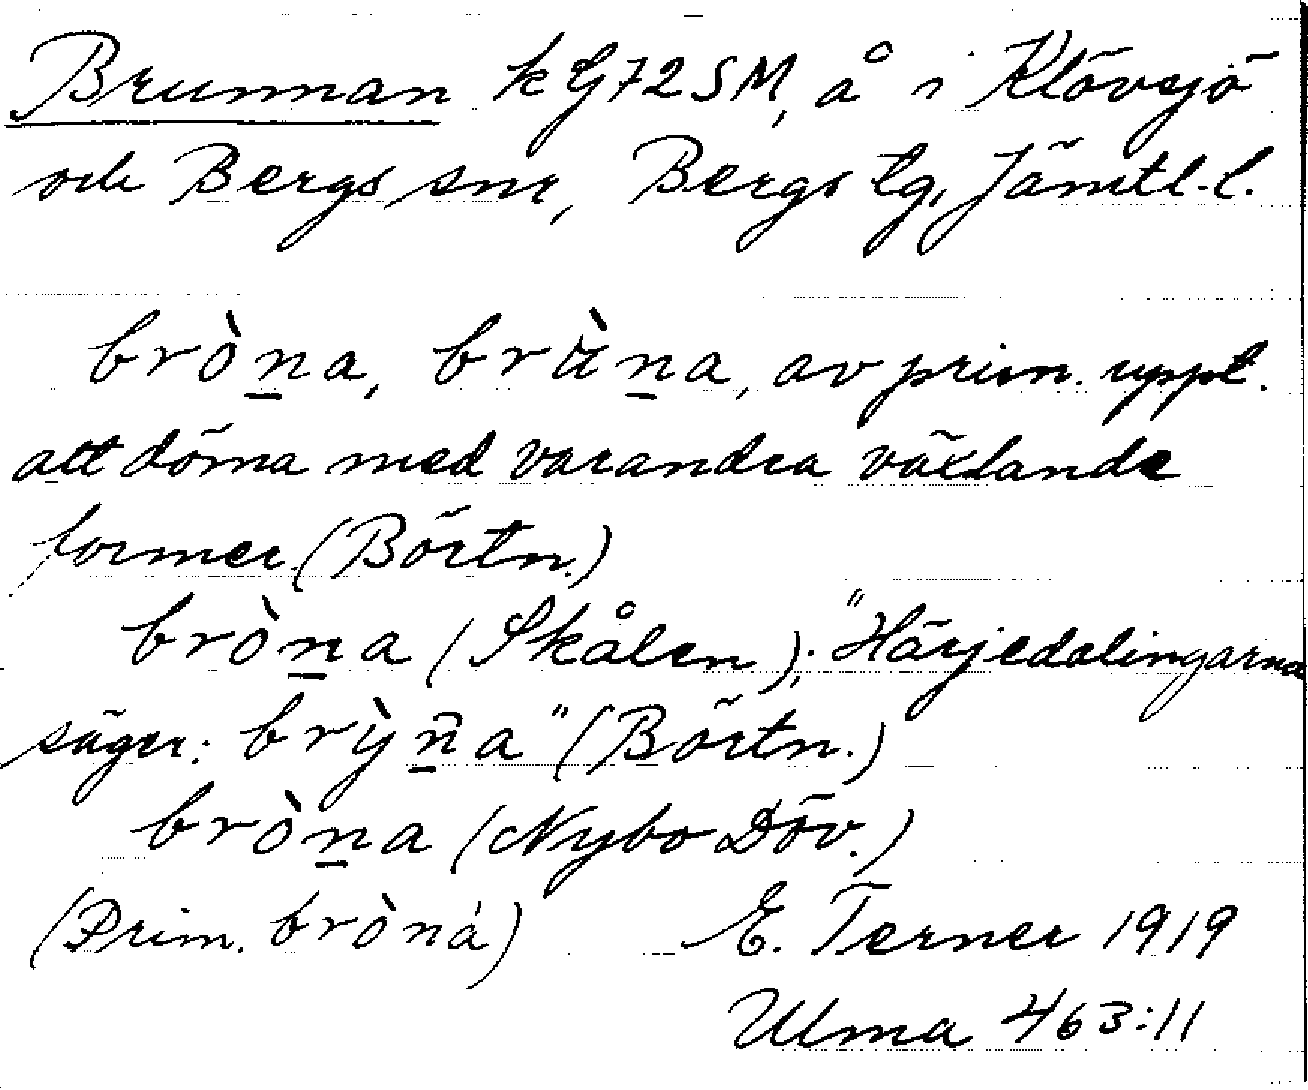 Brunnan kG72SM, å i Klövsjö
och Bergs snr, Bergs tg, Jämtl. l.
bròn̲a, brùn̲a, av prim. uppt.
att döma med varandra växlande
former (Börtn.)
bròn̲a (Skålen); "Härjedalingarna
säger: brỳn̲̄a" (Börtn.)
bròn̲a (Nybo Döv.)
(Prim. bròná) E. Terner 1919
Ulma 463:11